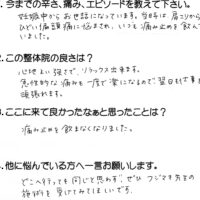 1. 今までの辛さ、痛み、エピソードを教えて下さい。
妊娠中からお世話になっています。当時は肩こりから
ひどい偏頭痛に悩まされ、いつも痛み止めを飲んで
いました。
2. この整体院の良さは?
心地よい強さで、リラックス出来ます。
急性的な痛みも一度で楽になるので翌日も仕事を
頑張れます。
3. ここに来て良かったなぁと思ったことは?
痛み止めを飲まなくなりました。
4. 他に悩んでいる方へ一言お願いします。
どこへ行っても同じと思わず、ぜひフジマキ先生の
施術を受けてみてほしいです。